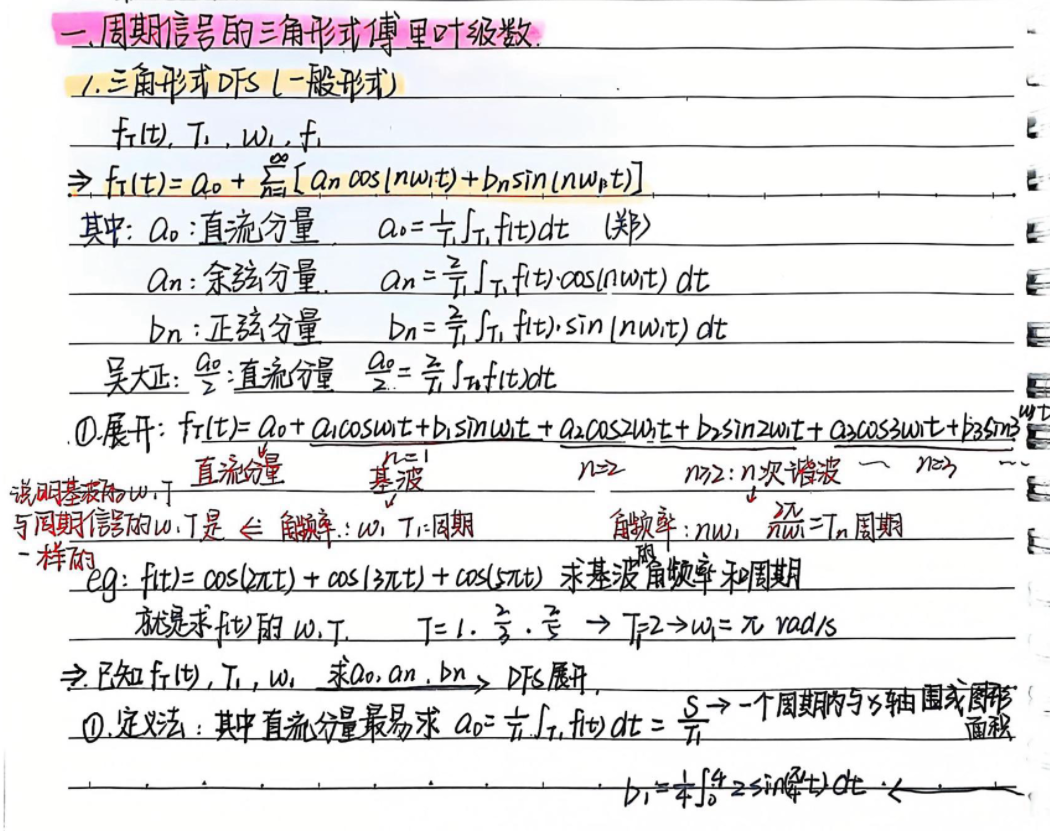 一、周期信号的三角形式傅里叶级数.
1.三角形式DFS (一般形式)
f_T(t), T₁, w₁, f₁
⇒ f_T(t) = a₀ + ∑_{n=1}^{∞} [an cos(nw₁t) + bn sin(nw₁t)]
其中: a₀:直流分量 a₀ = 1/T₁ ∫_{T₁} f(t) dt (郑)
an:余弦分量. an = 2/T₁ ∫_{T₁} f(t)·cos(nw₁t) dt
bn:正弦分量 bn = 2/T₁ ∫_{T₁} f(t)·sin(nw₁t) dt
吴大正: a₀/2:直流分量 a₀/2 = 2/T₁ ∫_{T₁} f(t)dt
①.展开: f_T(t) = a₀ + a₁cosw₁t + b₁sinw₁t + a₂cos2w₁t + b₂sin2w₁t + a₃cos3w₁t + b₃sin3w₁t
直流分量 n=1 基波 n=2 n≥2:n次谐波 ~ n=3 ...
说明基波的w、T
与周期信号的w、T是 ⇐ 角频率:w₁ T₁:周期 角频率:nw₁ 2π/nw₁ = Tn 周期
一样的
eg: f(t) = cos(2πt) + cos(3πt) + cos(5πt) 求基波的角频率和周期
就是求f(t)的w、T. T = 1、2/3、2/5 → T₁=2 → w₁ = π rad/s
⇒.已知f_T(t), T₁, w₁ 求a₀、an、bn → DFS展开.
①.定义法:其中直流分量最易求 a₀ = 1/T₁ ∫_{T₁} f(t) dt = S/T₁ → 一个周期内与x轴围成图形
面积
b₁ = 1/4 ∫₀⁴ 2 sin(π/4 t) dt ←